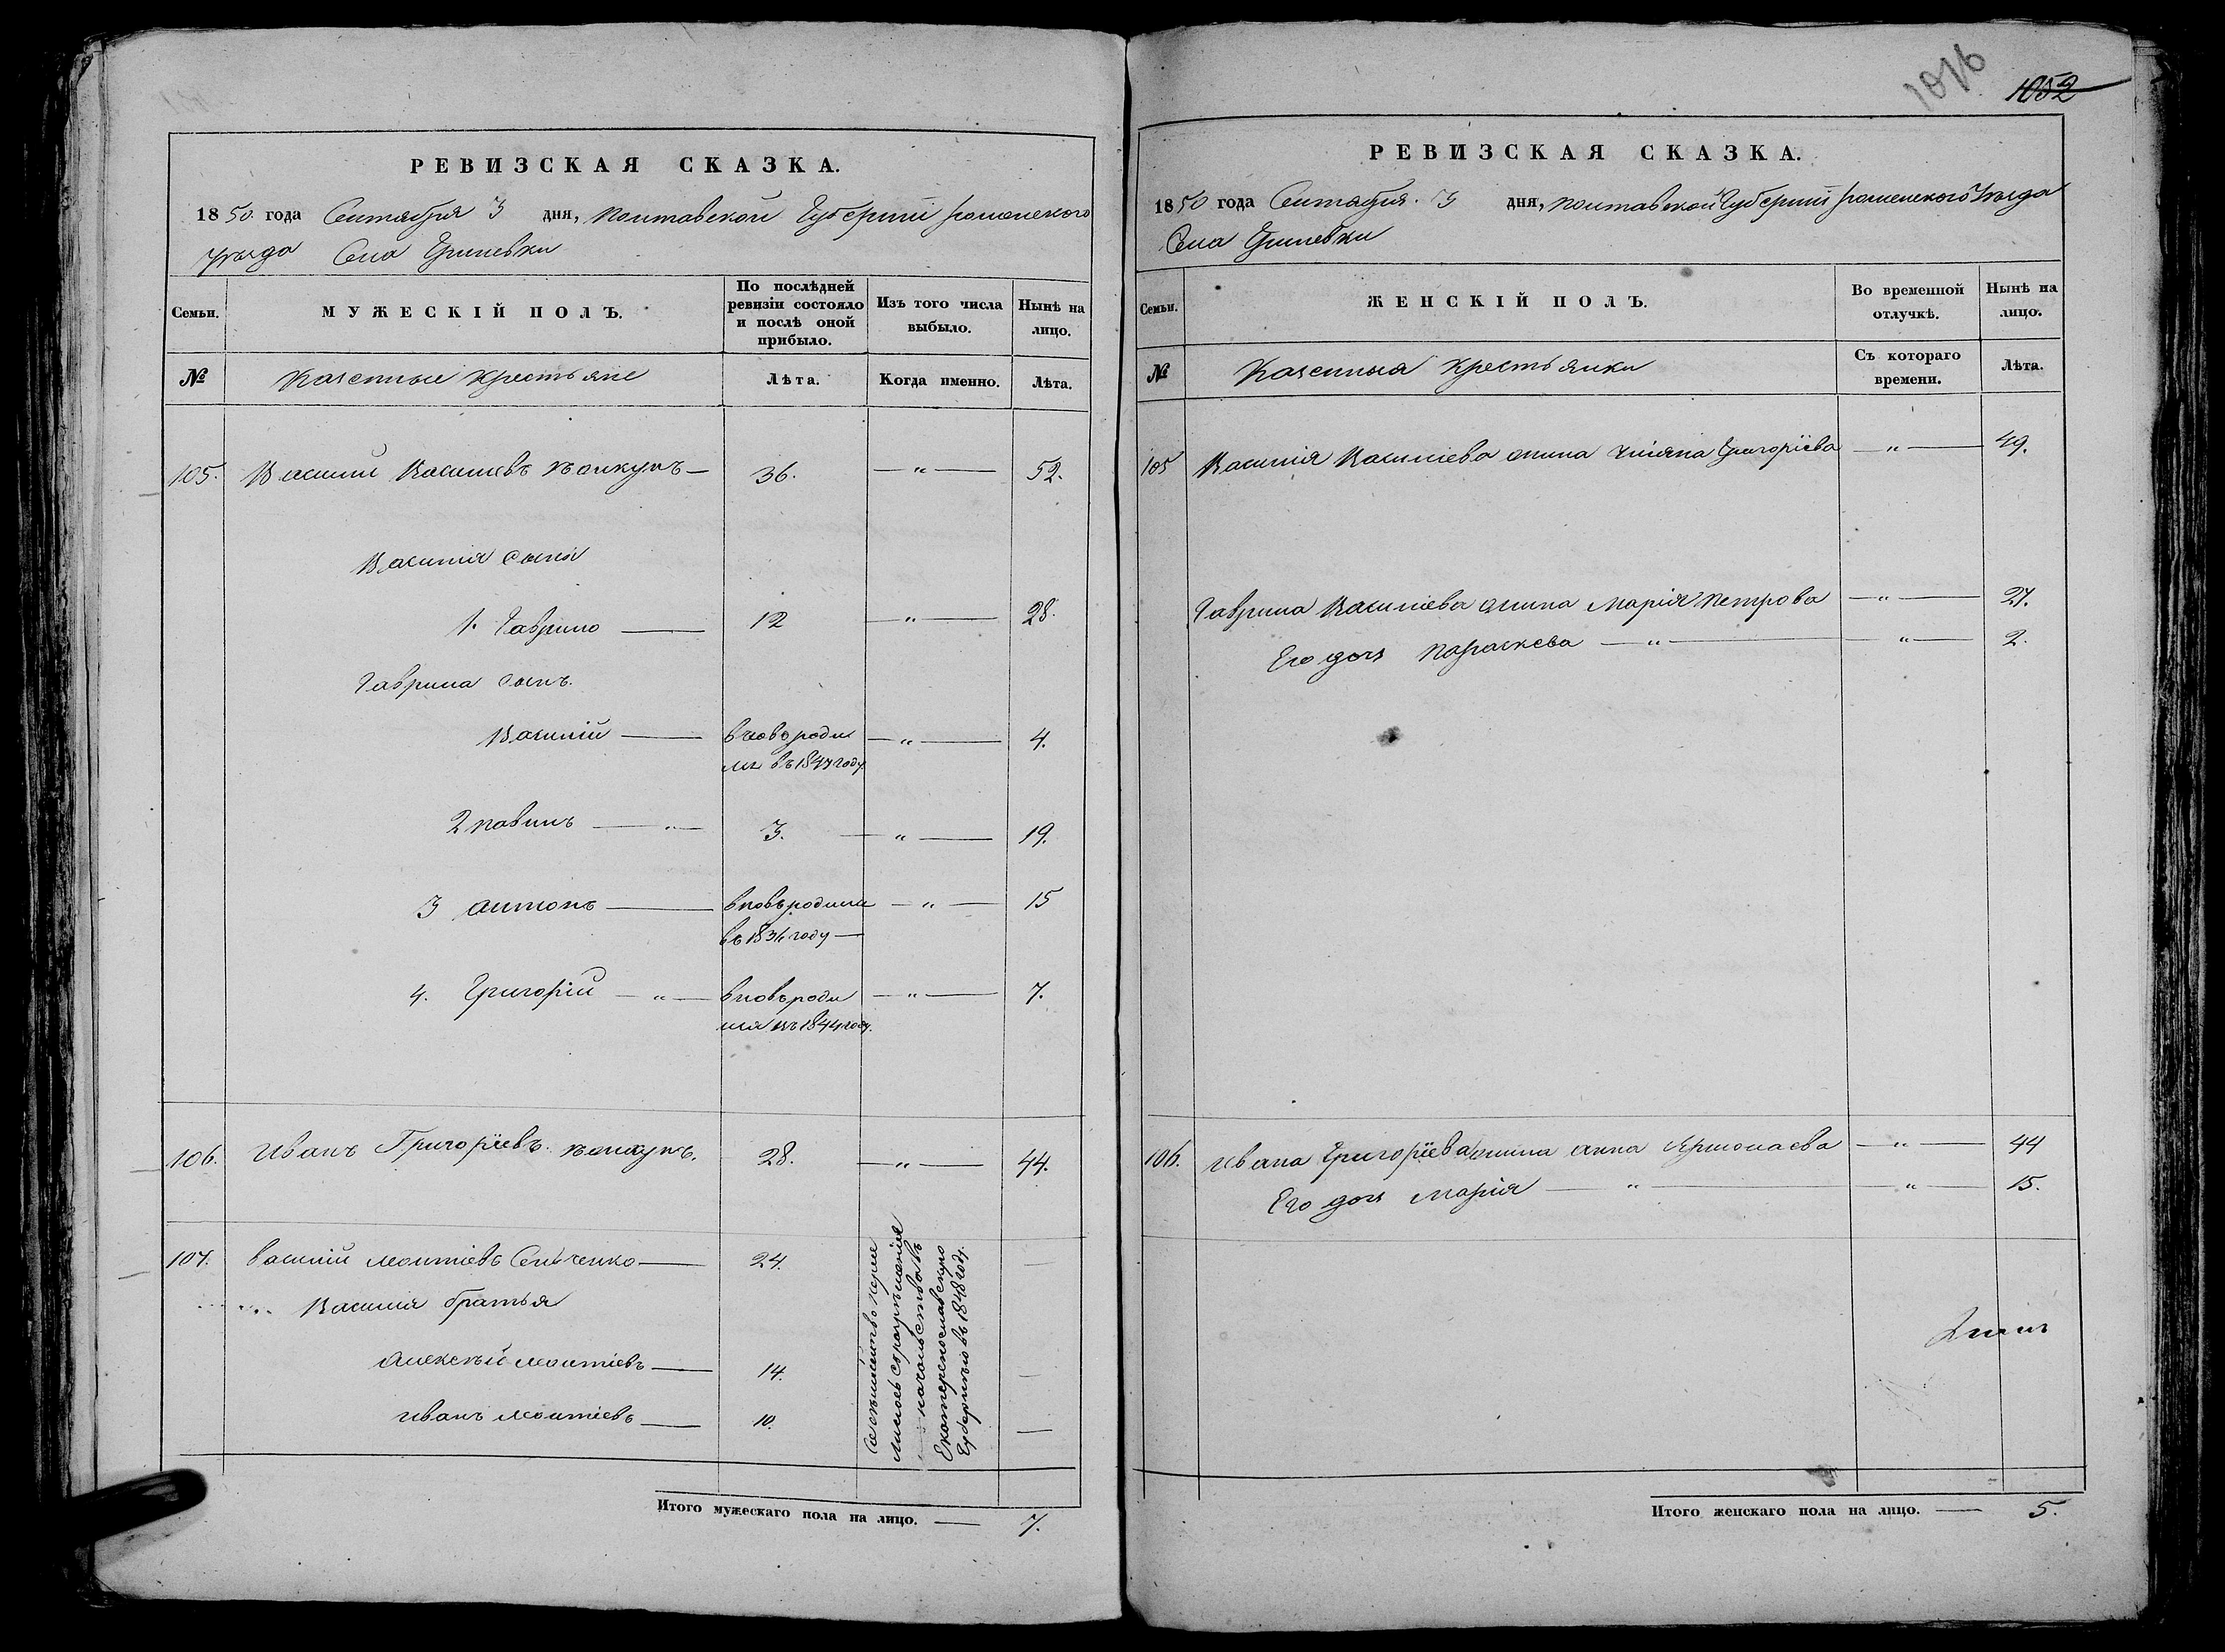 РЕВИЗСКАЯ СКАЗКА.
1850 года Сентября 3 дня, Полтавской Губерніи Роменского
Уѣзда Села Гриневки
Семьи.
МУЖЕСКІЙ ПОЛЪ.
По послѣдней
ревизіи состояло
и послѣ оной
прибыло.
Изъ того числа
выбыло.
Нынѣ на
лицо.
№ Казенные крестьяне Лѣта. Когда именно. Лѣта.
105. Василий Васильевъ 36. — „ — 52.
Василія сыны
1. Гаврило — 12 — „ — 28.
Гаврила сынъ.
Василій — вновь роди — „ — 4.
лся въ 1847 году
2 Павилъ — „ — 3. — „ — 19.
3 Антонъ — вновь родился — „ — 15
въ 1836 году —
4. Григорій — „ — вновь роди — „ — 7.
лся въ 1844 году.
106. Иванъ Григоріевъ 28. — „ — 44.
107. Василій Леонтіевъ Сенченко — 24. —
Василія братья
Алексѣй Леонтіевъ — 14. —
Иванъ Леонтіевъ — 10. —
Самъ съ разрѣшенія
начальства въ
Екатеринославскую
Губернію въ 1848 году.
Итого мужескаго пола на лицо. — 7.
1016
1052
РЕВИЗСКАЯ СКАЗКА.
1850 года Сентября 3 дня, Полтавской Губерніи Роменского Уѣзда
Села Гриневки
Семьи.
ЖЕНСКІЙ ПОЛЪ.
Во временной
отлучкѣ.
Нынѣ на
лицо.
№ Казенныя крестьянки
Съ котораго
времени.
Лѣта.
105 Василія Васильева жина Уліяна Григоріева — „ — 49.
Гаврила Васильева жина Марія Петрова — „ — 27.
Его дочь Параскева — „ — „ — 2.
106. Ивана Григоріева жина Анна Ермолаева — „ — 44
Его дочь Марія — „ — „ — 15.
Итого женскаго пола на лицо. — 5.